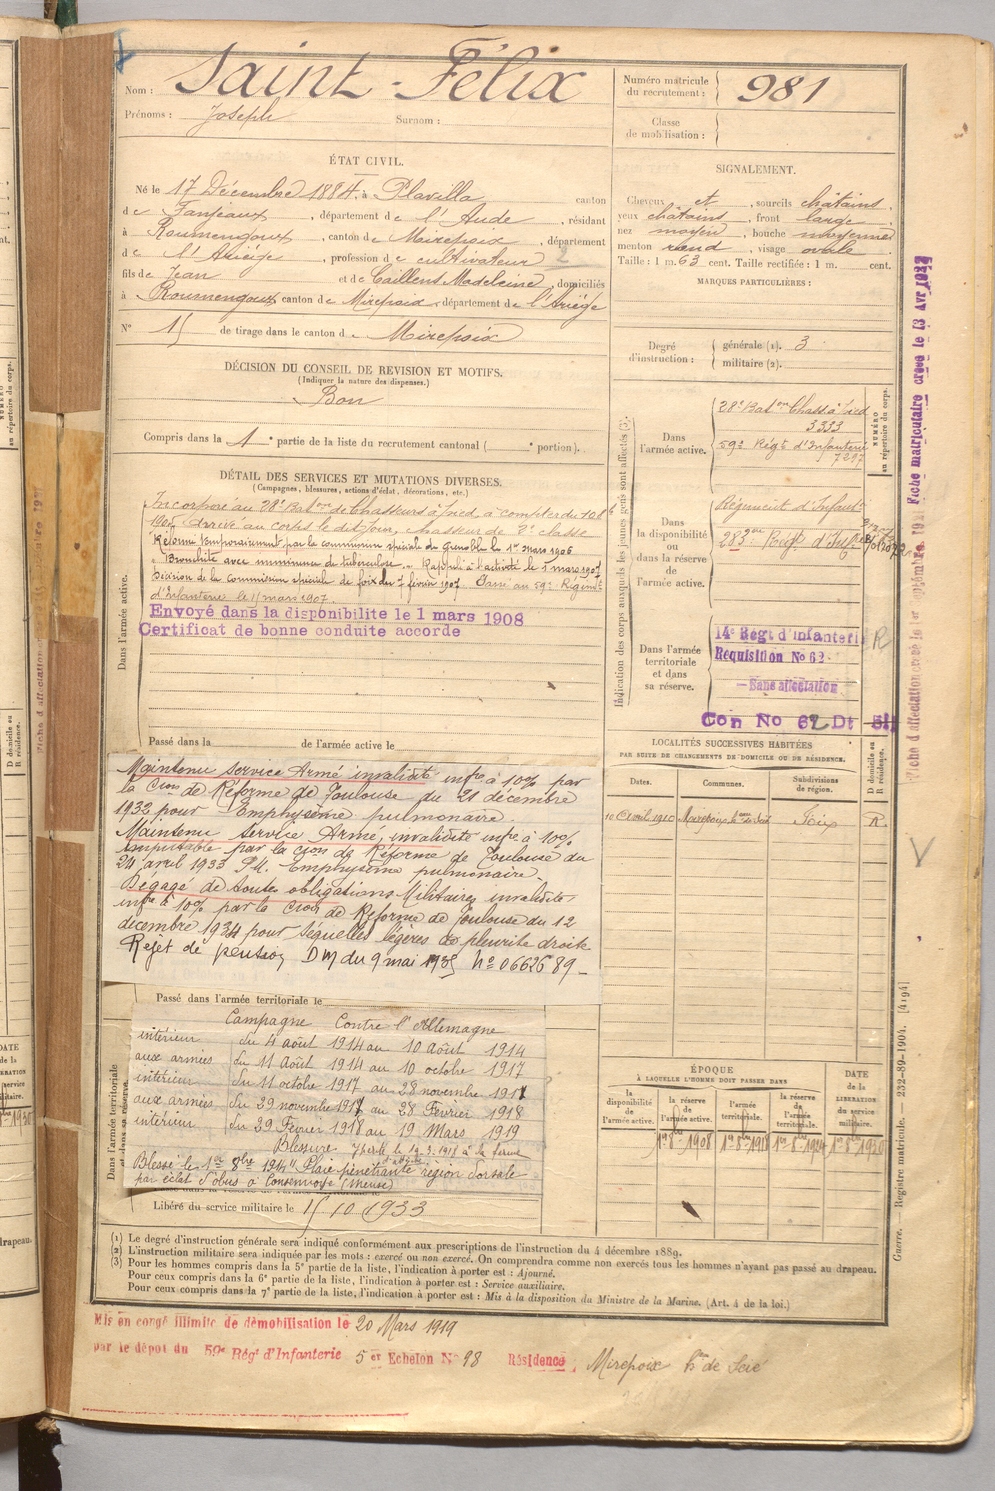 Nom : Saint-Félix
Prénoms : Joseph Surnom :
Numéro matricule du recrutement : 981
Classe de mobilisation :
ÉTAT CIVIL.
Né le 17 Décembre 1884, à Plavilla canton
de Fanjeaux, département de l'Aude, résidant
à Roumengoux, canton de Mirepoix, département
de l'Ariège, profession de cultivateur 2
fils de Jean et de Caillent Madeleine, domiciliés
à Roumengoux canton de Mirepoix, département de l'Ariège
N° 15 de tirage dans le canton de Mirepoix
SIGNALEMENT.
Cheveux et, sourcils châtains,
yeux châtains, front large
nez moyen, bouche moyenne
menton rond, visage ovale
Taille : 1 m. 63 cent. Taille rectifiée : 1 m. cent.
MARQUES PARTICULIÈRES :
Degré d'instruction : générale (1). 3
militaire (2).
DÉCISION DU CONSEIL DE REVISION ET MOTIFS.
(Indiquer la nature des dispenses.)
Bon
Compris dans la 1e partie de la liste du recrutement cantonal ( e portion).
DÉTAIL DES SERVICES ET MUTATIONS DIVERSES.
(Campagnes, blessures, actions d'éclat, décorations, etc.)
Dans l'armée active.
Incorporé au 28e Baton de Chasseurs à Pied, à compter du 10
Arrivé au corps le dit jour, chasseur de 2e classe
Réformé temporairement par la commission spéciale de Grenoble le 1er mars 1906
Bronchite avec imminence de tuberculose. Rappelé à l'activité le 5 mars 1907
Décision de la commission spéciale de foix du 7 février 1907. Passé au 59e Régimt
d'Infanterie le 11 mars 1907.
Envoyé dans la disponibilite le 1 mars 1908
Certificat de bonne conduite accorde
Passé dans la de l'armée active le
Maintenu service Armé invalidité infre à 10% par
la Cion de Réforme de Toulouse du 21 décembre
1932 pour Emphysème pulmonaire.
Maintenu service Armé, invalidité infre à 10%
imputable par la Cion de Réforme de Toulouse du
24 avril 1933 P.M. Emphysème pulmonaire.
Dégagé de toutes obligations Militaires invalidité
infre à 10% par la Cion de Réforme de Toulouse du 12
décembre 1934 pour séquelles légères de pleurite droite
Rejet de pension DM du 9 mai 1935 No 0662689
Indication des corps auxquels les jeunes gens sont affectés (3).
NUMÉRO au répertoire du corps.
Dans l'armée active.
28e Baton Chass à Pied
3333
59e Régt d'Infanterie
7297
Dans la disponibilité ou dans la réserve de l'armée active.
Régiment d'Infant
283e Régt d'Inf
Dans l'armée territoriale et dans sa réserve.
14e Régt d'Infanterie R
Requisition No 62
Sans affectation
Con No 62 Dt
LOCALITÉS SUCCESSIVES HABITÉES
PAR SUITE DE CHANGEMENTS DE DOMICILE OU DE RÉSIDENCE.
Dates. Communes. Subdivisions de région. D domicile ou R résidence.
10 Avril 1910 Foix R.
Passé dans l'armée territoriale le
Dans l'armée territoriale et dans sa réserve
Campagne Contre l'Allemagne
intérieur du 4 août 1914 au 10 Août 1914
aux armées du 11 Août 1914 au 10 octobre 1917
intérieur du 11 octobre 1917 au 28 novembre 1917
aux armées du 29 novembre 1917 au 28 Février 1918
intérieur du 29 Février 1918 au 19 Mars 1919
Blessure
Blessé le 1er 8bre 1914 "Plaie pénétrante région dorsale
par éclat d'obus à Consenvoye (Meuse)
Libéré du service militaire le 15 10 1933
ÉPOQUE
À LAQUELLE L'HOMME DOIT PASSER DANS
la disponibilité de l'armée active.
la réserve de l'armée active.
l'armée territoriale.
la réserve de l'armée territoriale.
DATE de la LIBÉRATION du service militaire.
1er 8bre 1908 1er 8bre 1918 1er 8bre 1924 1er 8bre 1930
(1) Le degré d'instruction générale sera indiqué conformément aux prescriptions de l'instruction du 4 décembre 1889.
(2) L'instruction militaire sera indiquée par les mots : exercé ou non exercé. On comprendra comme non exercés tous les hommes n'ayant pas passé au drapeau.
(3) Pour les hommes compris dans la 5e partie de la liste, l'indication à porter est : Ajourné.
Pour ceux compris dans la 6e partie de la liste, l'indication à porter est : Service auxiliaire.
Pour ceux compris dans la 7e partie de la liste, l'indication à porter est : Mis à la disposition du Ministre de la Marine. (Art. 4 de la loi.)
Mis en congé illimité de démobilisation le 20 Mars 1919
par le dépot du 59e Régt d'Infanterie 5er Echelon No 98 Résidence : Mirepoix
Guerre. — Registre matricule. — 232-89-1904. [4194]
Fiche matriculaire créée le 13 Avr